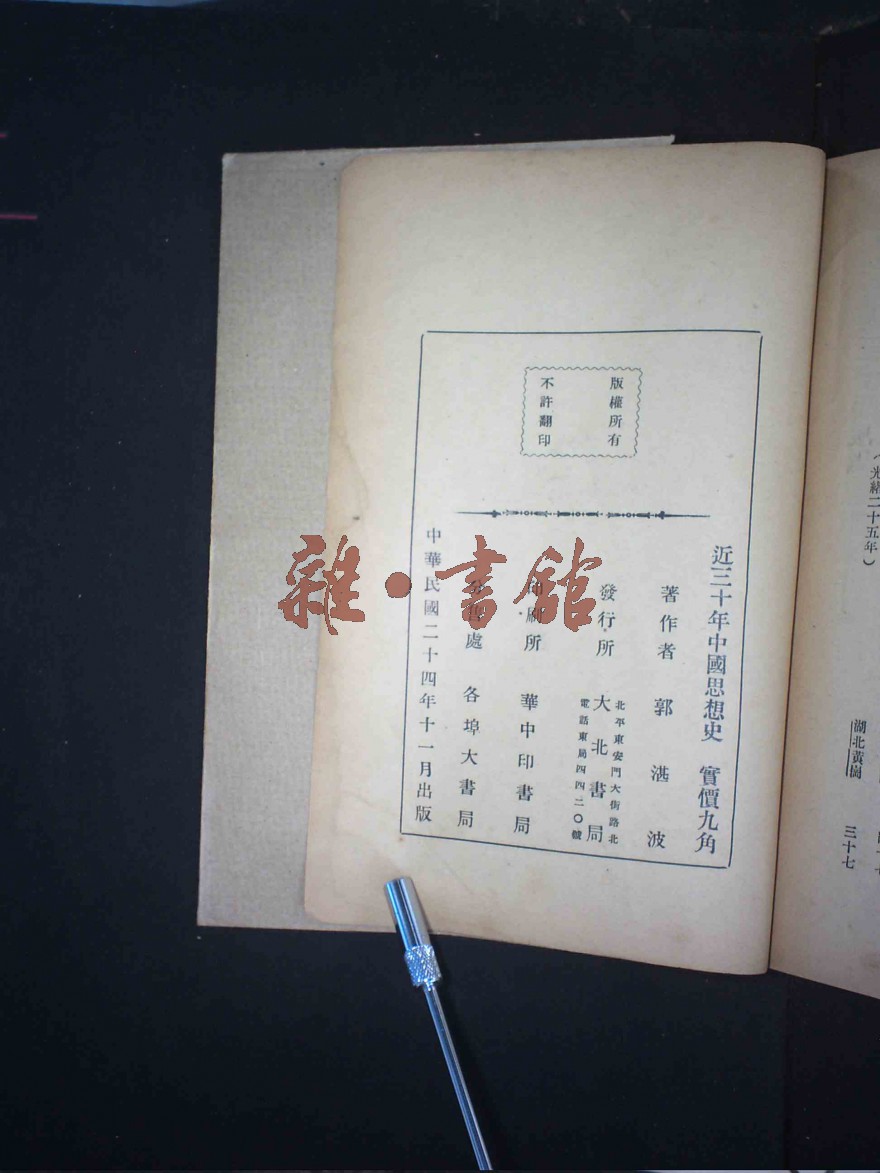 版權所有
不許翻印
近三十年中國思想史　實價九角
著作者　郭湛波
發行所　大北書局
北平東安門大街路北
電話東局四四二〇號
印刷所　華中印書局
分售處　各埠大書局
中華民國二十四年十一月出版
雜·書館
(光緒二十五年)
湖北黃岡　三十七